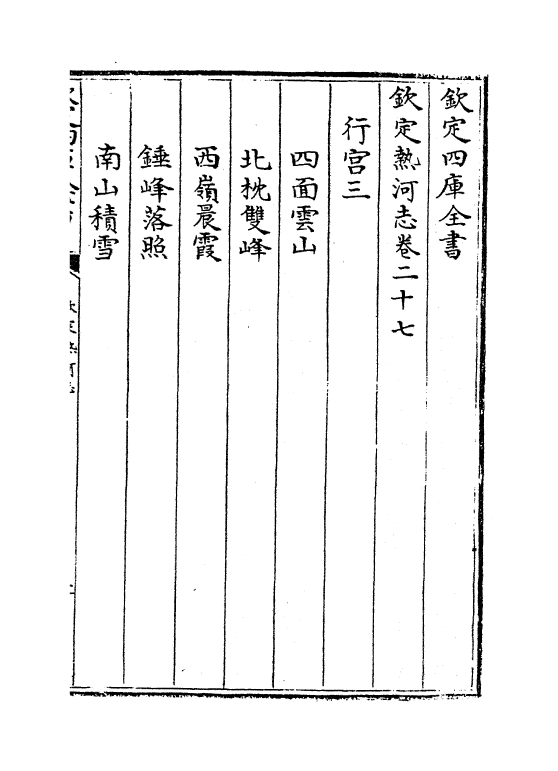 欽定四庫全書
欽定熱河志卷二十七
行宮三
四面雲山
北枕雙峰
西嶺晨霞
錘峰落照
南山積雪